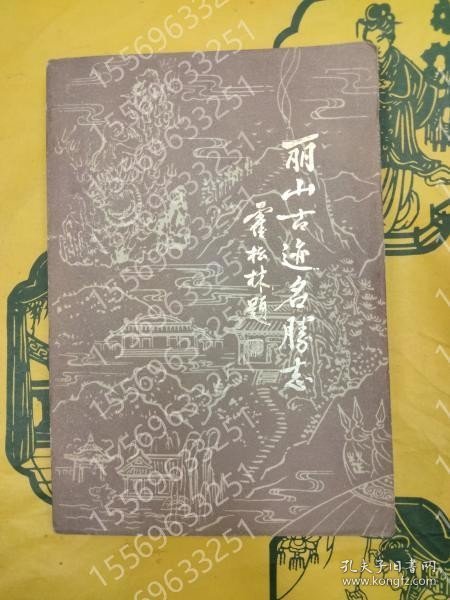 丽山古迹名胜志
霍松林题
15569633251
15569633251
15569633251
15569633251
15569633251
15569633251
15569633251
15569633251
15569633251
孔夫子旧书网
www.kongfz.com